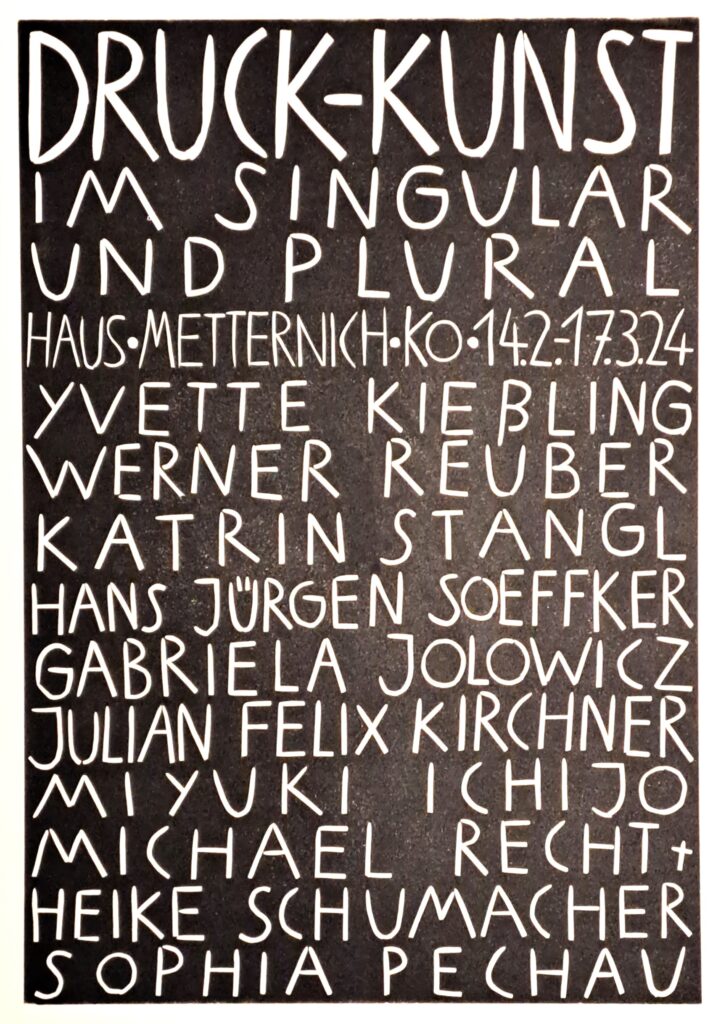 DRUCK-KUNST
IM SINGULAR
UND PLURAL
HAUS•METTERNICH•KO•14.2.-17.3.24
YVETTE KIEßLING
WERNER REUBER
KATRIN STANGL
HANS JÜRGEN SOEFFKER
GABRIELA JOLOWICZ
JULIAN FELIX KIRCHNER
MIYUKI ICHIJO
MICHAEL RECHT+
HEIKE SCHUMACHER
SOPHIA PECHAU